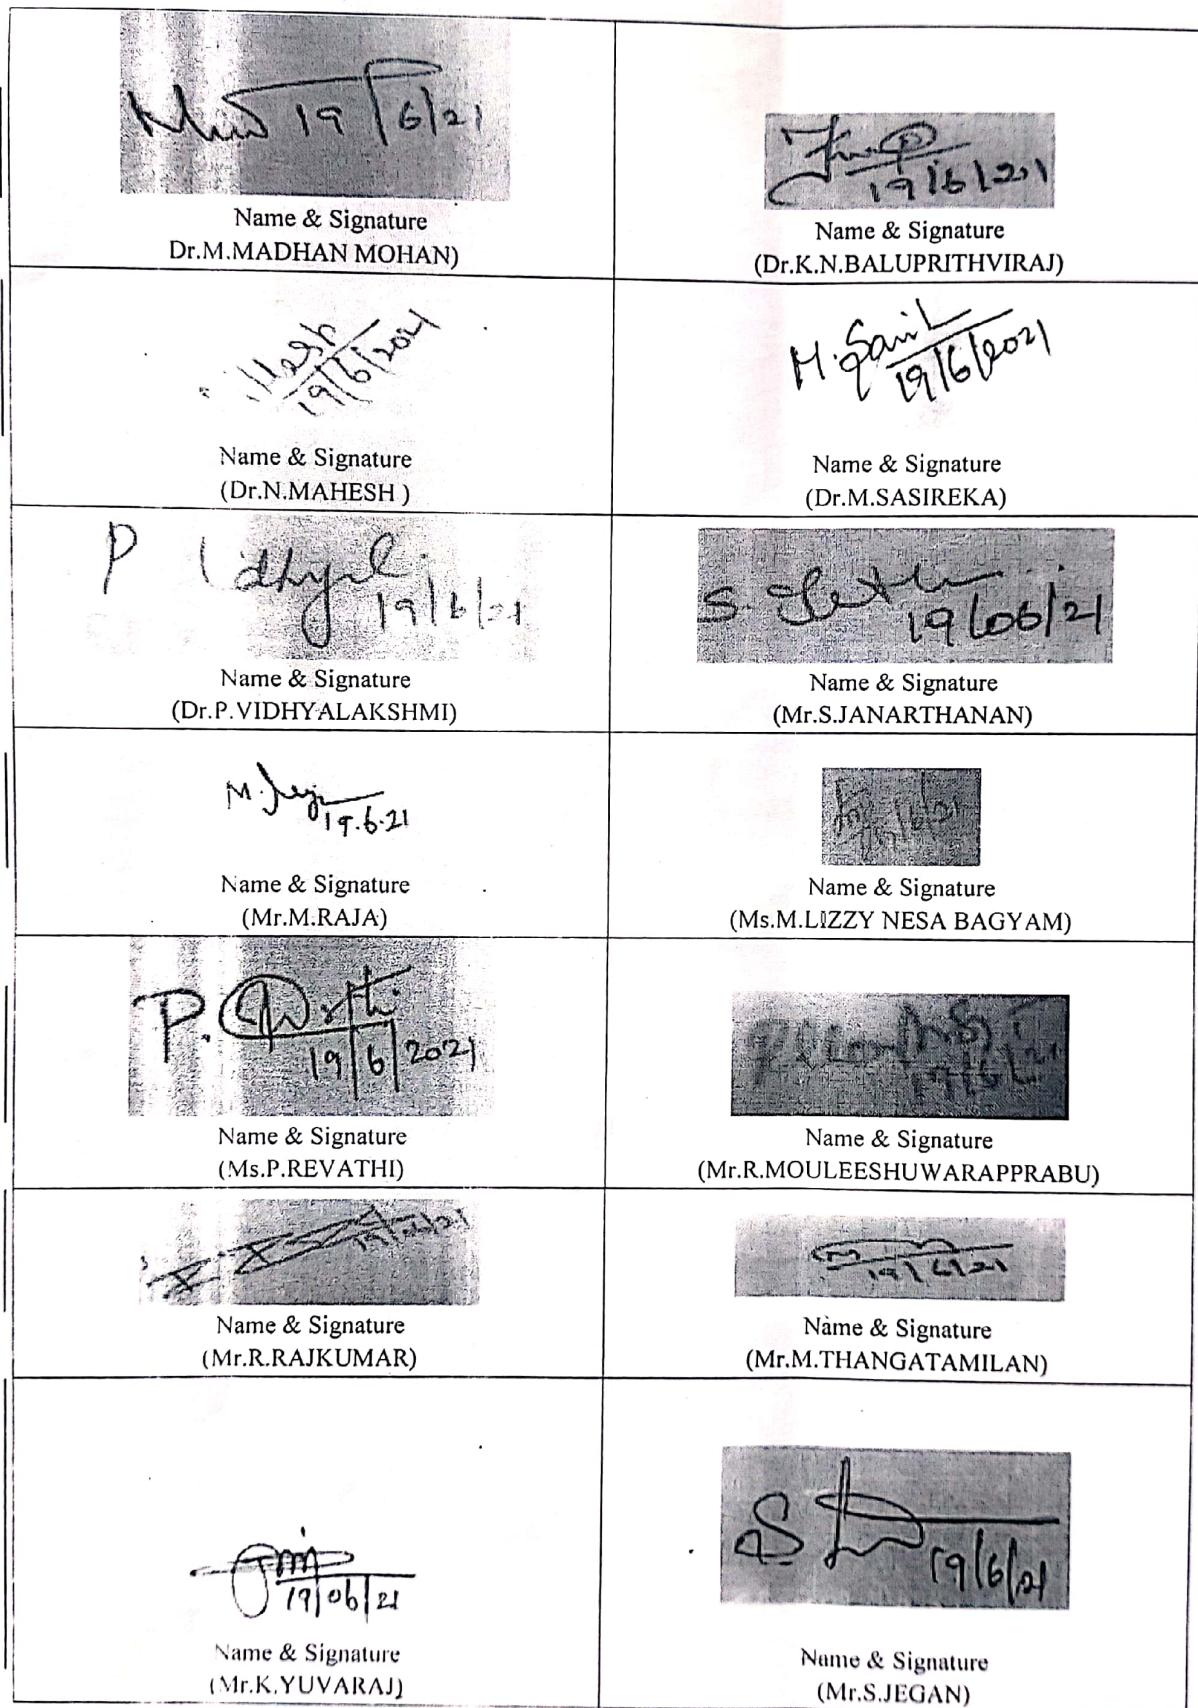 19/6/21
Name & Signature
Dr.M.MADHAN MOHAN)
19/6/21
Name & Signature
(Dr.K.N.BALUPRITHVIRAJ)
19/6/2021
Name & Signature
(Dr.N.MAHESH )
M.
19/6/2021
Name & Signature
(Dr.M.SASIREKA)
P
19/6/21
Name & Signature
(Dr.P.VIDHYALAKSHMI)
S.
19/06/21
Name & Signature
(Mr.S.JANARTHANAN)
M.
19.6.21
Name & Signature
(Mr.M.RAJA)
19/6/21
Name & Signature
(Ms.M.LIZZY NESA BAGYAM)
P.
19/6/2021
Name & Signature
(Ms.P.REVATHI)
Name & Signature
(Mr.R.MOULEESHUWARAPPRABU)
Name & Signature
(Mr.R.RAJKUMAR)
19/6/21
Name & Signature
(Mr.M.THANGATAMILAN)
19/06/21
Name & Signature
(Mr.K.YUVARAJ)
S
19/6/21
Name & Signature
(Mr.S.JEGAN)